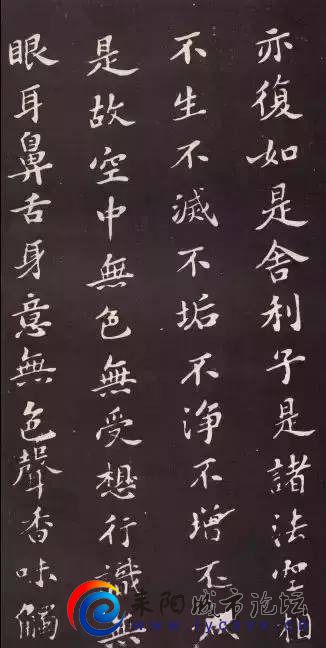 亦復如是舍利子是諸法空相
不生不滅不垢不淨不增不
是故空中無色無受想行識無
眼耳鼻舌身意無色聲香味觸
耒阳城市论坛